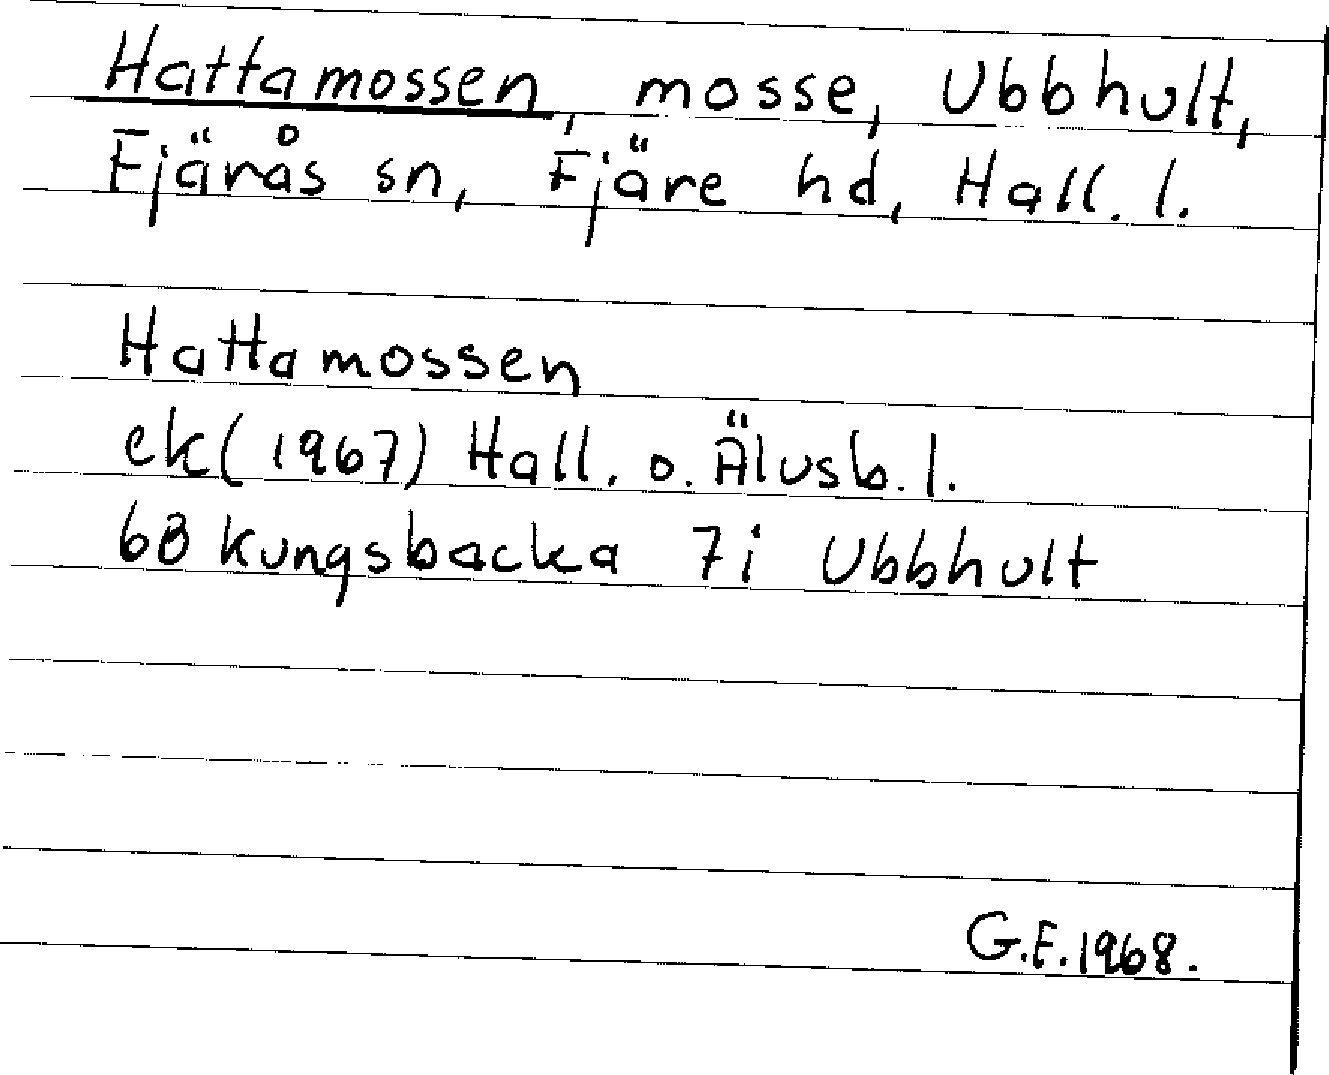 Hattamossen, mosse, Ubbhult,
Fjärås sn, Fjäre hd, Hall. l.
Hattamossen
ek(1967) Hall. o. Älvsb. l.
6B Kungsbacka 7i Ubbhult
G.F. 1968.